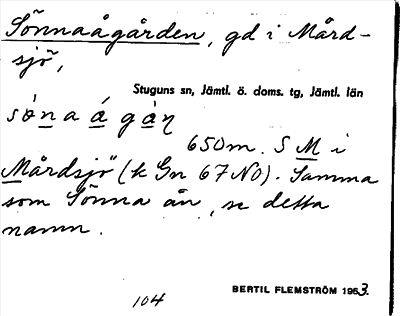 Sönnaågården, gd i Mård-
sjö,
Stuguns sn, Jämtl. ö. doms. tg, Jämtl. län
sò̀na á gàn̥
650m. S M i
Mårdsjö (k Gn 67 NO). Samma
som Sönna ån, se detta
namn.
104
BERTIL FLEMSTRÖM 1953.